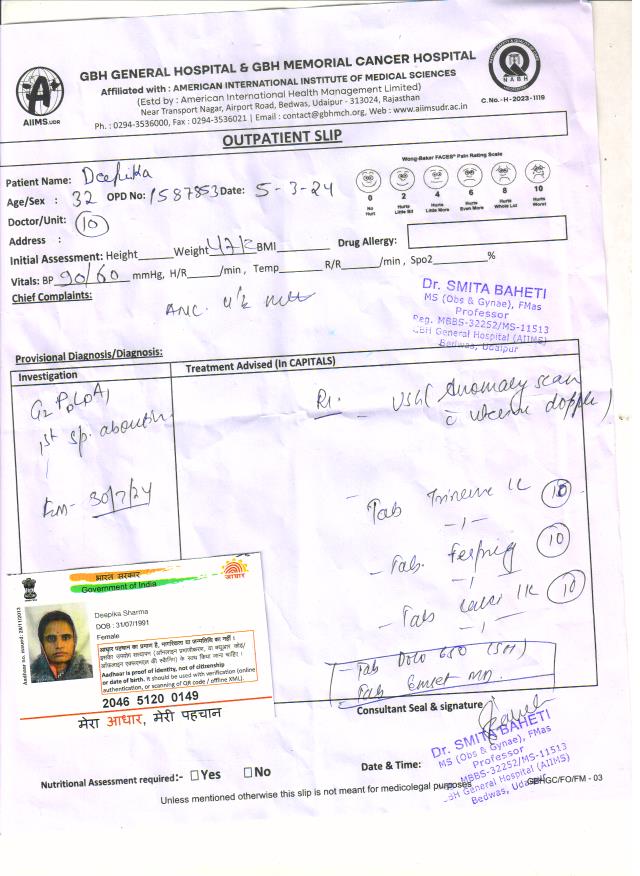 GBH GENERAL HOSPITAL & GBH MEMORIAL CANCER HOSPITAL
Affiliated with : AMERICAN INTERNATIONAL INSTITUTE OF MEDICAL SCIENCES
(Estd by : American International Health Management Limited)
Near Transport Nagar, Airport Road, Bedwas, Udaipur - 313024, Rajasthan
Ph. : 0294-3536000, Fax : 0294-3536021 | Email : contact@gbhmch.org, Web : www.aiimsudr.ac.in
AIIMS.UDR
NABH
C. No.- H - 2023 - 1119
OUTPATIENT SLIP
Wong-Baker FACES Pain Rating Scale
0 2 4 6 8 10
No Hurt
Hurts Little Bit
Hurts Little More
Hurts Even More
Hurts Whole Lot
Hurts Worst
Patient Name: Deepika
Age/Sex : 32 OPD No: 1587853 Date: 5-3-24
Doctor/Unit: 10
Address :
Initial Assessment: Height Weight 47 BMI Drug Allergy:
Vitals: BP 90/60 mmHg, H/R /min, Temp R/R /min, Spo2 %
Chief Complaints:
ANC
Dr. SMITA BAHETI
MS (Obs & Gynae), FMas
Professor
Reg. MBBS-32252/MS-11513
GBH General Hospital (AIIMS)
Bedwas, Udaipur
Provisional Diagnosis/Diagnosis:
Investigation
Treatment Advised (In CAPITALS)
G2 P0 L0 A1
1st sp.
30/7/24
Anomaly scan
c uterine
Tab 10
Tab. 10
Tab 10
Tab Dolo 650
Tab
भारत सरकार
Government of India
आधार
Aadhaar no. issued: 28/11/2013
Deepika Sharma
DOB : 31/07/1991
Female
आधार पहचान का प्रमाण है, नागरिकता या जन्मतिथि का नहीं ।
Aadhaar is proof of identity, not of citizenship
or date of birth. It should be used with verification (online
authentication, or scanning of QR code / offline XML).
2046 5120 0149
मेरा आधार, मेरी पहचान
Consultant Seal & signature
Dr. SMITA BAHETI
MS (Obs & Gynae), FMas
Professor
MBBS-32252/MS-11513
GBH General Hospital (AIIMS)
Bedwas,
Date & Time:
Nutritional Assessment required:- Yes No
Unless mentioned otherwise this slip is not meant for medicolegal purposes
GBHGC/FO/FM - 03